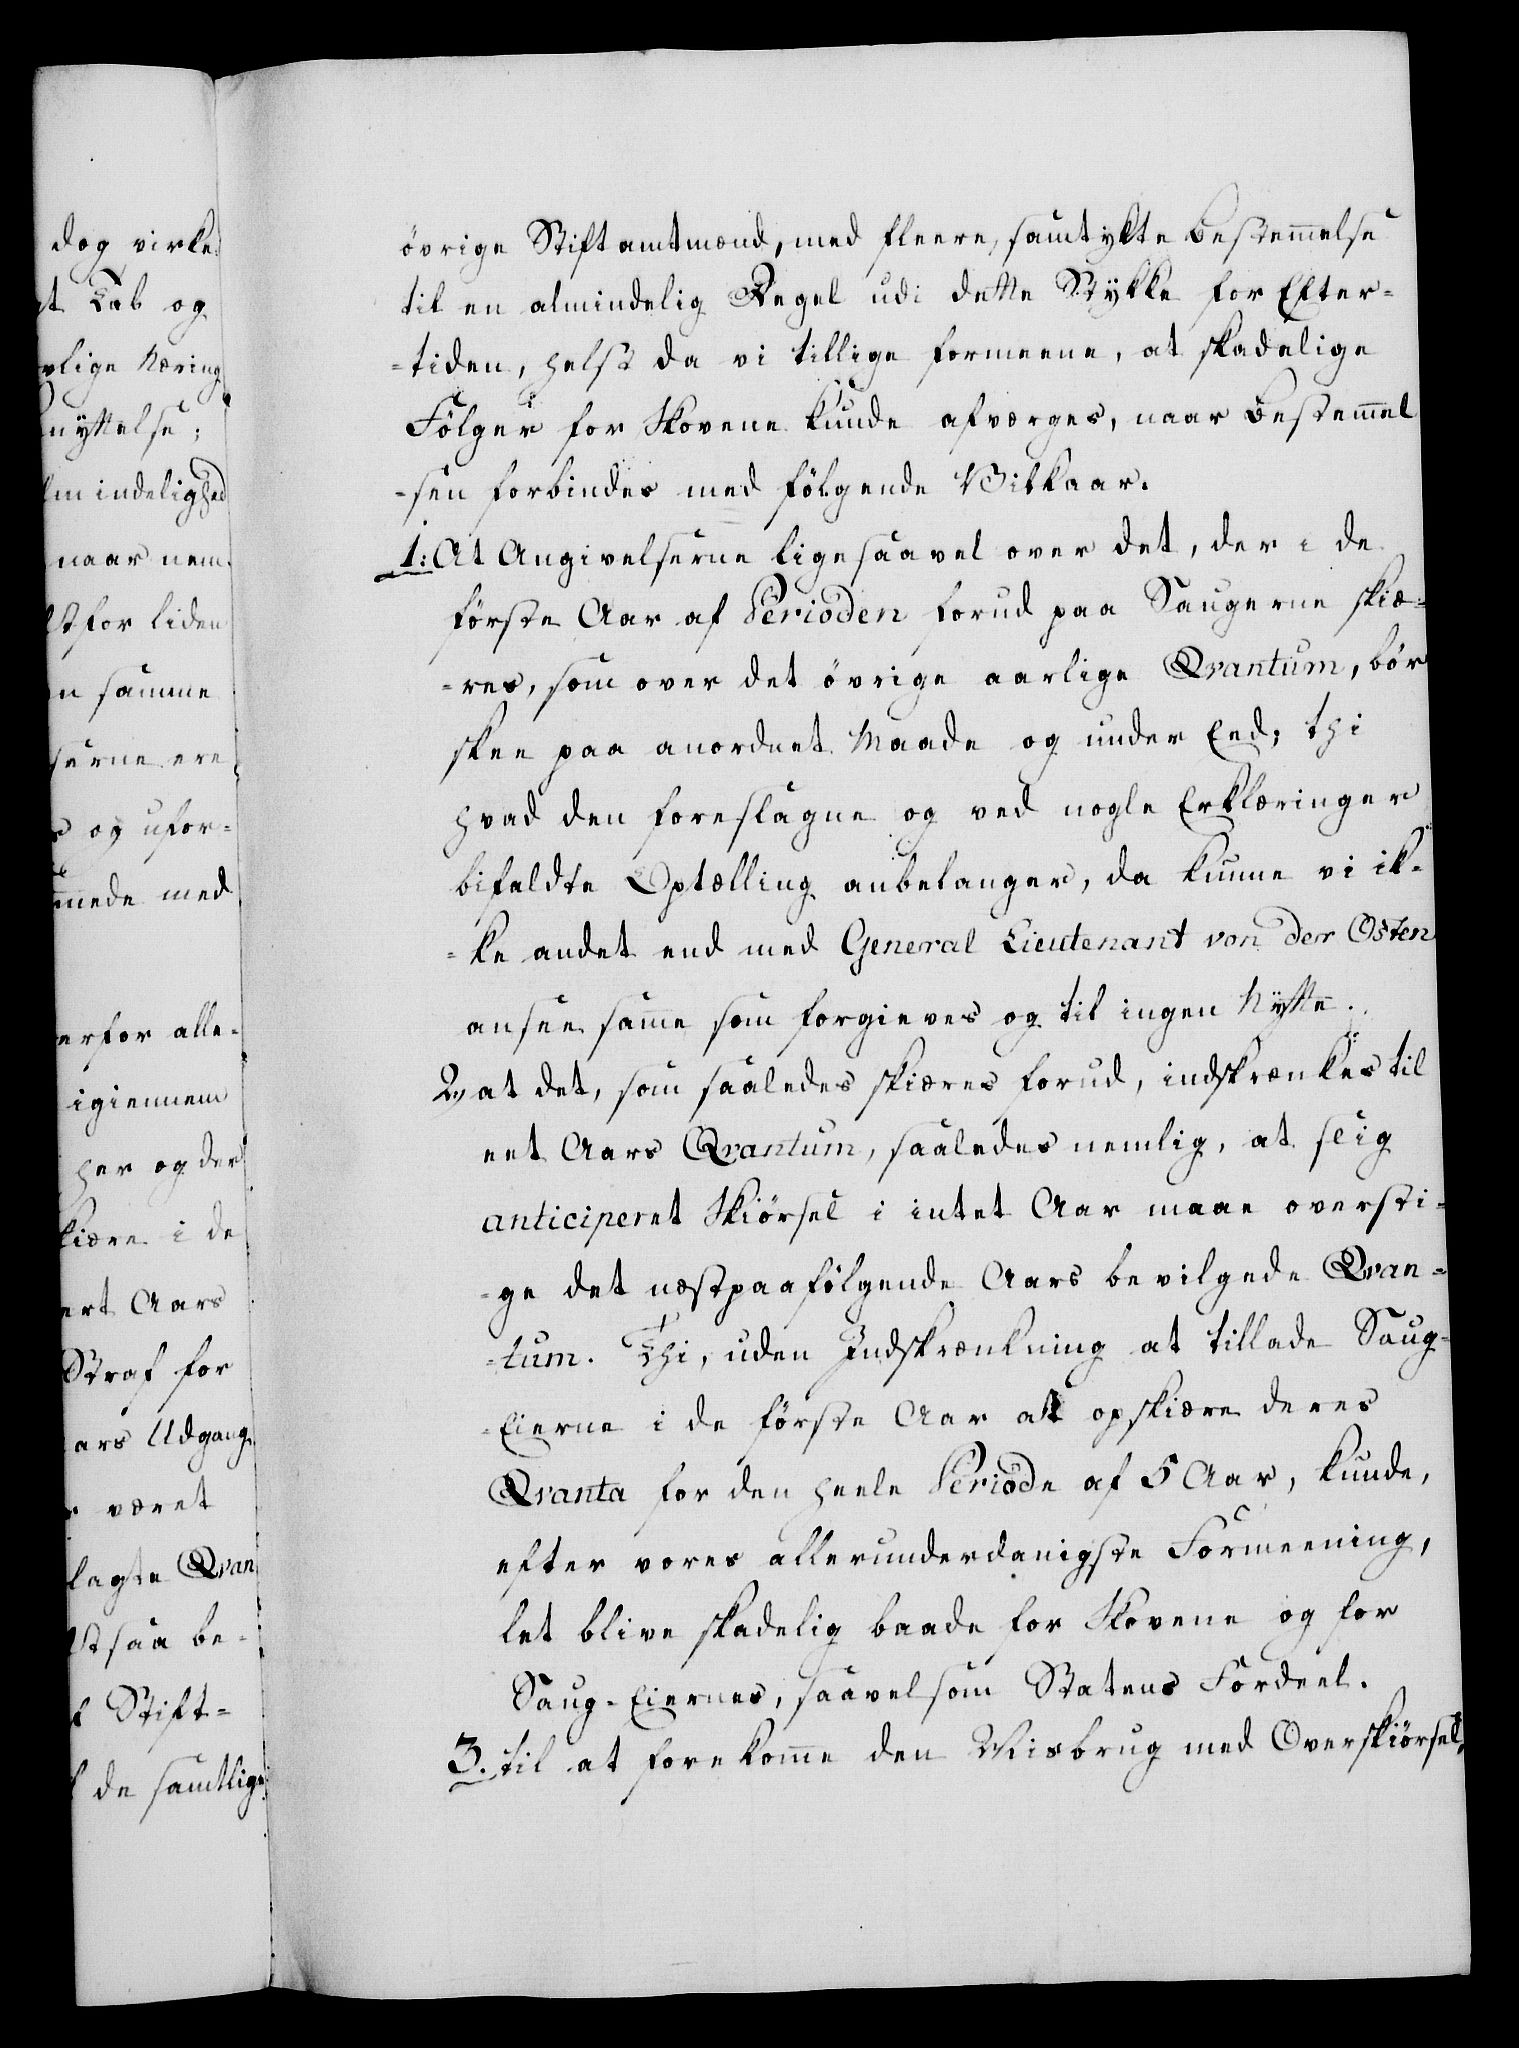 dog virke
t Tab og
rlige Næring
nyttelse;
lmindelighed
naar nem
st for liden
n samme
serne ere
s og ufor=
mmede med
erfor alle=
igiennem
her og der
kiære i de
ert Aars
Straf for
ars Udgang
r været
lagte Qvan
st saa be=
f Stift=
l de samtlige
övrige Stiftamtmænd, med fleere, samtykte Bestemmelse
til en almindelig Regel udi dette Stykke for Efter=
=tiden, helst da vi tillige formeene, at skadelige
Fölger for Skovene kunde afværges, naar Bestemmel
=sen forbindes med fölgende Vilkaar.
1: At Angivelserne ligesaavel over det, der i de
förste Aar af Perioden forud paa Saugerne skiæ=
=res, som over det övrige aarlige Qvantum, bör
skee paa anordnet Maade og under Eed; thi
hvad den foreslagne og ved nogle Erklæringer
bifaldte Optælling anbelanger, da kunne vi ik=
=ke andet end med General Lieutenant von der Osten
ansee samme som forgieves og til ingen Nytte.
2, at det, som saaledes skiæres forud, indskrænkes til
eet Aars Qvantum, saaledes nemlig, at slig
anticiperet Skiörsel i intet Aar maae oversti=
=ge det næstpaafölgende Aars bevilgede Qvan=
=tum. Thi, uden Indskrænkning at tillade Saug=
=Eierne i de förste Aar at opskiære deres
Qvanta for den heele Periode af 5 Aar, kunde,
efter vores allerunderdanigste Formeening,
let blive skadelig baade for Skovene og for
Saug=Eiernes, saavelsom Statens Fordeel.
3. til at forekomme den Misbrug med Overskiörsel,